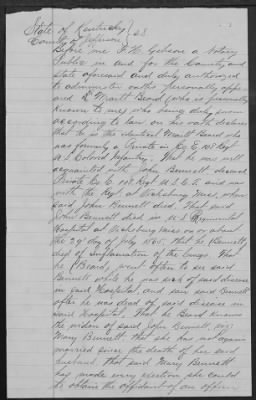 State of Kentucky } S.S.
County of Jefferson
Before me F. H. Gibson a Notary
Public in and for the County and
state aforesaid and duly authorized
to administer oaths personally appe
ared Merritt Beard (who is personally
known to me) who being duly sworn
according to law, on his oath declares
that he is the identical Merritt Beard who
was formerly a Private in Co. E, 108 Regt
U.S. Colored Infantry. That he was well
acquainted with John Bennett, deceased
Private Co. E 108 Regt U.S.C.I. and was
with the Regt at Vicksburg Miss, when
said John Bennett died. That said
John Bennett died in U.S. Regimental
Hospital at Vicksburg Miss on or about
the 29 day of July 1865, that he (Bennett)
died of Inflammation of the lungs. That
he (Beard) went often to see said
Bennett while he was sick of said disease
in said Hospital, and saw said Bennett
after he was dead of said disease in
said Hospital. That he Beard knows
the widow of said John Bennett, viz:
Mary Bennett, that she has not again
married since the death of her said
husband. That said Mary Bennett
has made every exertion she could
to obtain the affidavit of an officer